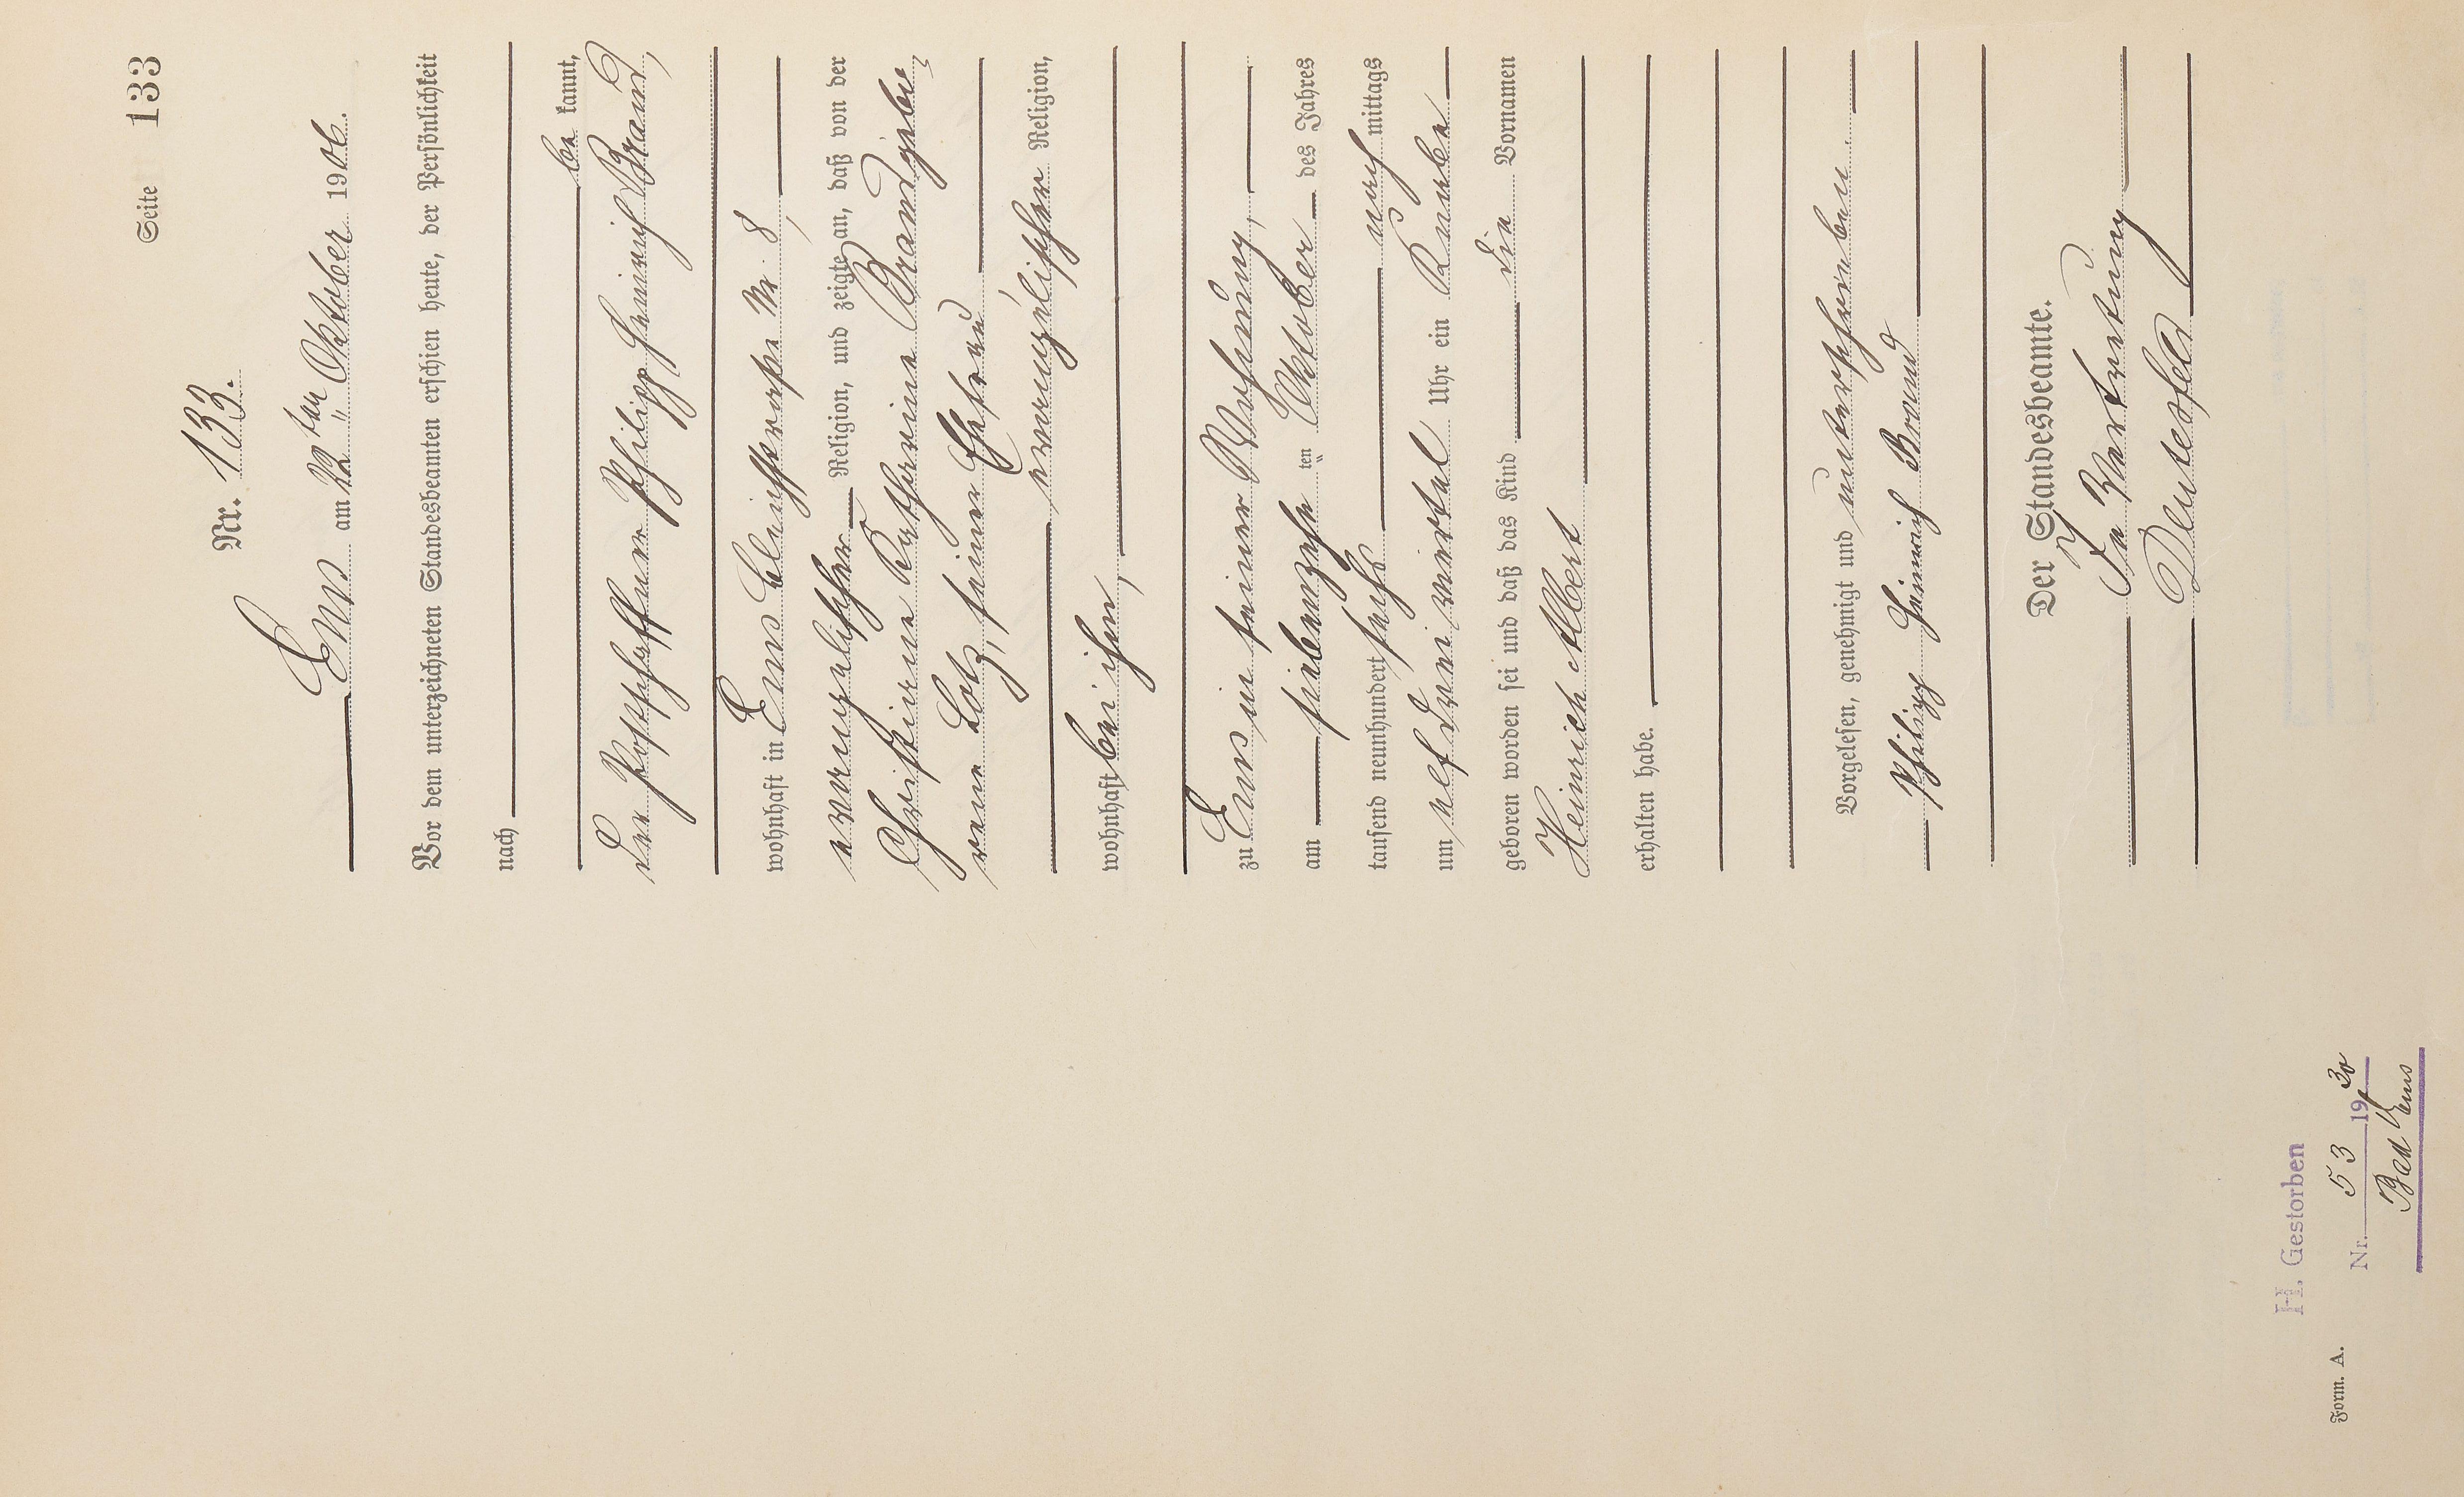 Seite 133
Nr. 133.
Ems am 22ten Oktober 1906.
Vor dem unterzeichneten Standesbeamten erschien heute, der Persönlichkeit
nach
be kannt,
der Postschaffner Philipp Heinrich Brand,
wohnhaft in Ems Bleichstraße Nr. 8,
evangelischer Religion, und zeigte an, daß von der
Christine Katharine Brand gebo-
rene Lotz, seiner Ehefrau
evangelischer Religion,
wohnhaft bei ihm,
zu Ems in seiner Wohnung,
am siebenzehn ten Oktober des Jahres
tausend neunhundert sechs nach mittags
um elf drei viertel Uhr ein Knabe
geboren worden sei und daß das Kind die Vornamen
Heinrich Albert
erhalten habe.
Vorgelesen, genehmigt und unterschrieben.
Philipp Heinrich Brand
Der Standesbeamte.
In Vertretung
H. Gestorben
Nr. 53 1930
Bad Ems
Form. A.